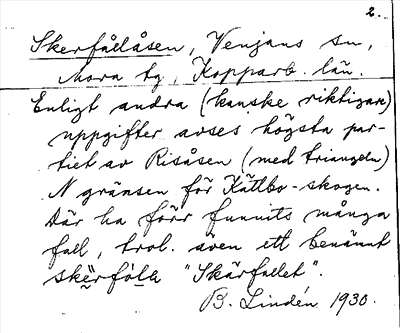 2.
Skerfållåsen, Venjans sn,
Mora tg, Kopparb. län.
Enligt andra (kanske riktigare)
uppgifter avses högsta par-
tiet av Risåsen (med triangeln)
N gränsen för Kättbo-skogen.
Där ha förr funnits många
fall, trol. även ett benämnt
skërföła "Skärfallet".
B. Lindén 1930.